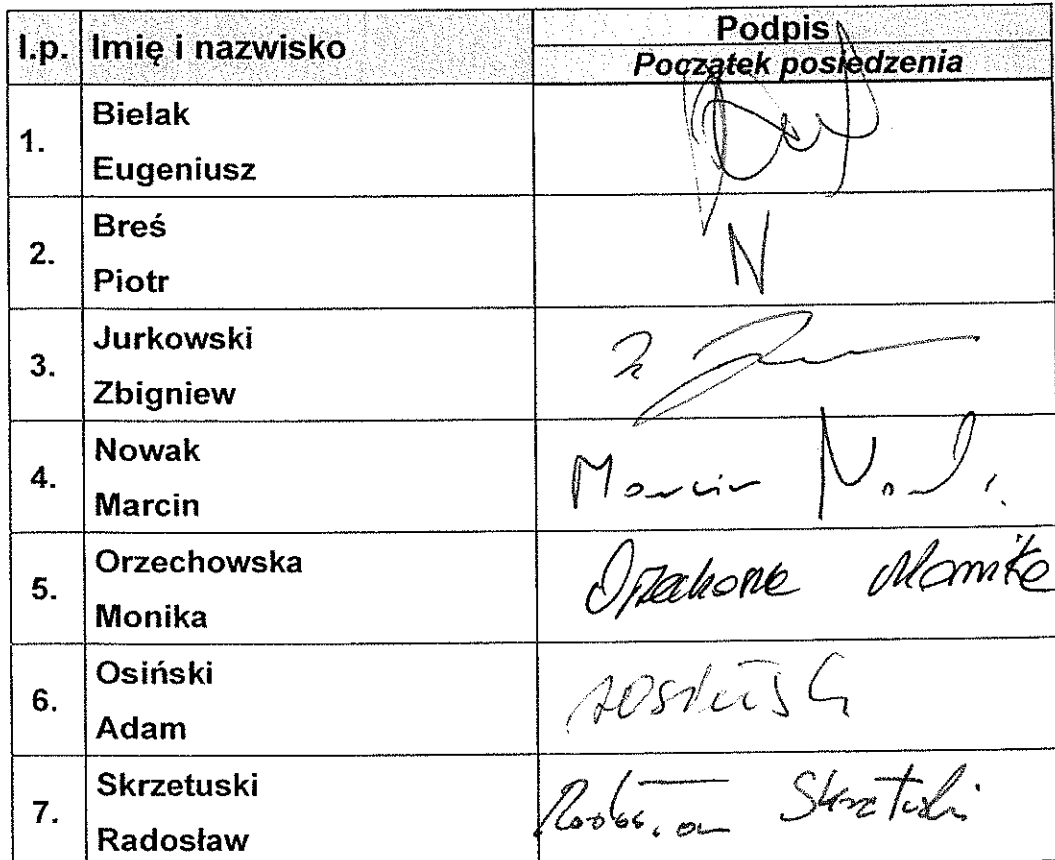 l.p. Imię i nazwisko Podpis
Początek posiedzenia
1. Bielak
Eugeniusz
2. Breś
Piotr
N
3. Jurkowski
Zbigniew
4. Nowak
Marcin
Marcin
5. Orzechowska
Monika
Monika
6. Osiński
Adam
7. Skrzetuski
Radosław
Skrzetuski